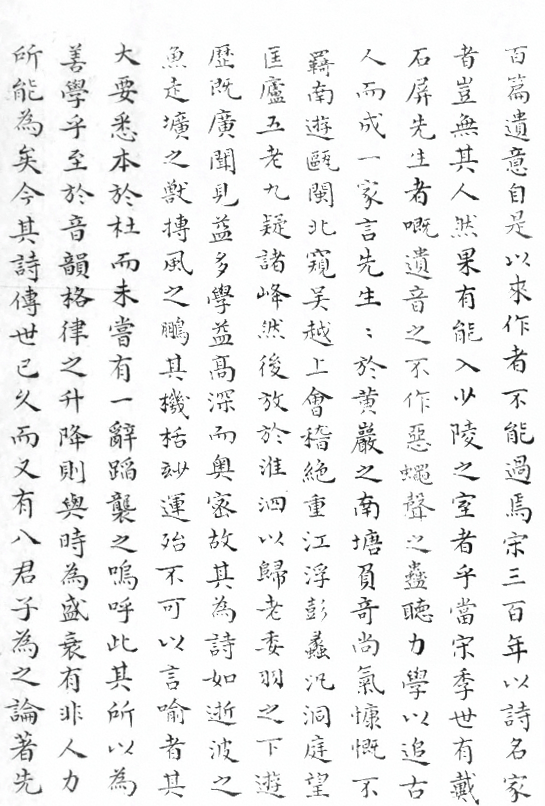 百篇遺意自是以來作者不能過焉宋三百年以詩名家
者豈無其人然果有能入少陵之室者乎當宋季世有戴
石屏先生者嘅遺音之不作惡蠅聲之蠱聽力學以追古
人而成一家言先生〻於黄巖之南塘負奇尚氣慷慨不
羇南遊甌閩北窺吴越上會稽絶重江浮彭蠡汎洞庭望
匡廬五老九疑諸峰然後放於淮泗以歸老委羽之下遊
歷既廣聞見益多學益髙深而奥密故其為詩如逝波之
魚走壙之獸摶風之鵬其機栝玅運殆不可以言喻者其
大要悉本於杜而未嘗有一辭蹈襲之嗚呼此其所以為
善學乎至於音韻格律之升降則與時為盛衰有非人力
所能為矣今其詩傳世已久而又有八君子為之論著先